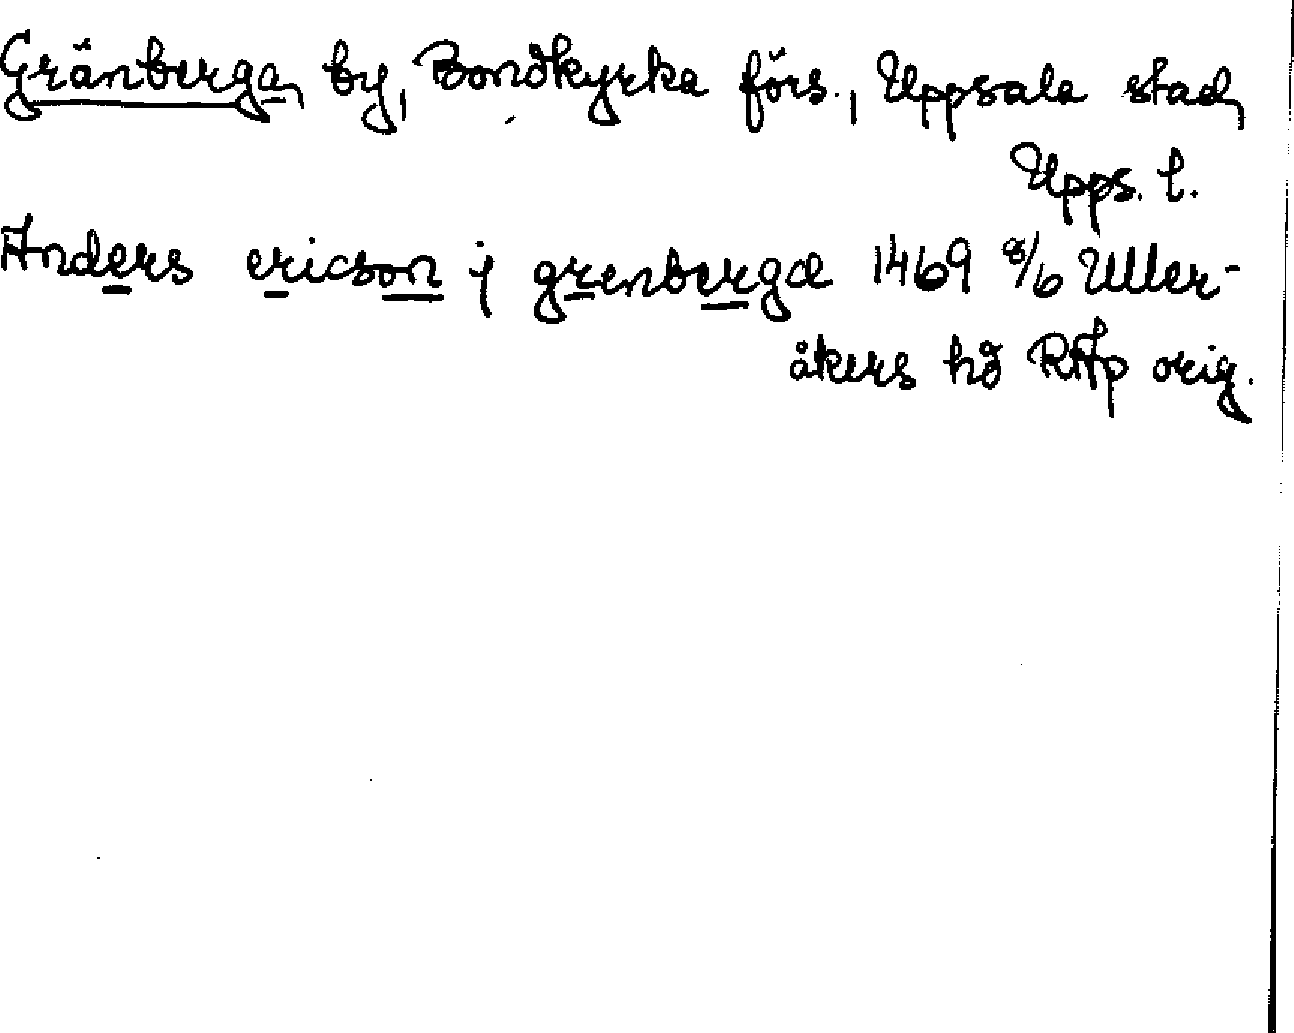 Gränberga, by, Bondkyrka förs., Uppsala stad,
Upps. l.
Anders ericson j grenberga 1469 8/6 Uller-
åkers hd RAp orig.